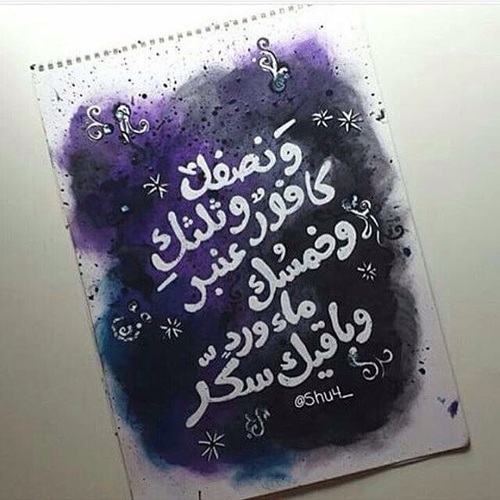 وَنصفك
كافورٌ وثلثكِ
عنبر
وخمسُك
ماء ورد
وباقيك سكّر
@Shu4_